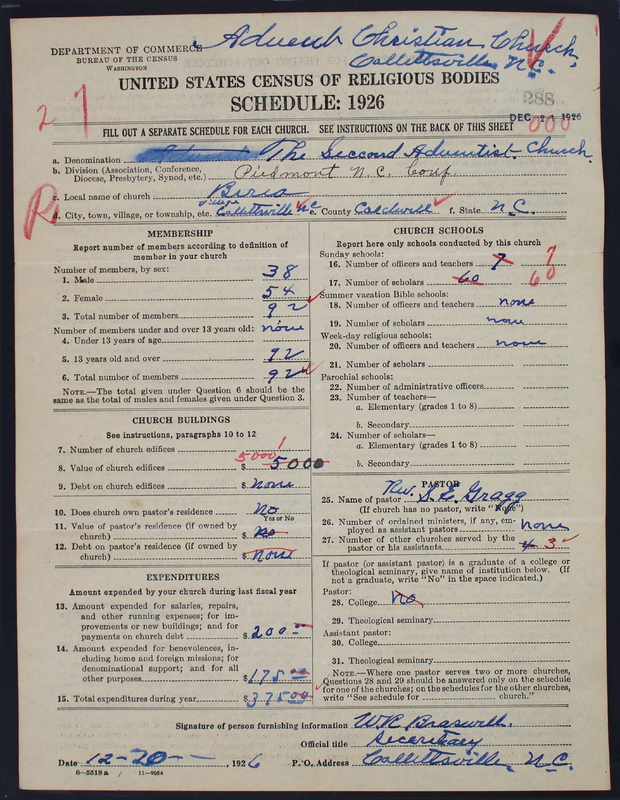 Advent Christian Church
Collettsville, N.C.
DEPARTMENT OF COMMERCE
BUREAU OF THE CENSUS
WASHINGTON
UNITED STATES CENSUS OF RELIGIOUS BODIES
SCHEDULE: 1926
288
DEC 21 1926
000
FILL OUT A SEPARATE SCHEDULE FOR EACH CHURCH. SEE INSTRUCTIONS ON THE BACK OF THIS SHEET
a. Denomination The Second Adventist Church.
b. Division (Association, Conference, Diocese, Presbytery, Synod, etc.) Piedmont N.C. Conf.
c. Local name of church Berea
d. City, town, village, or township, etc. Collettsville NC e. County Caldwell f. State N.C.
MEMBERSHIP
Report number of members according to definition of member in your church
Number of members, by sex:
1. Male 38
2. Female 54
3. Total number of members 92
Number of members under and over 13 years old: none
4. Under 13 years of age
5. 13 years old and over 92
6. Total number of members 92
NOTE.—The total given under Question 6 should be same as the total of males and females given under Question 3.
CHURCH BUILDINGS
See instructions, paragraphs 10 to 12
7. Number of church edifices 1
8. Value of church edifices $ 5000 5000
9. Debt on church edifices $ none
10. Does church own pastor's residence no
Yes or No
11. Value of pastor's residence (if owned by church) $ no
12. Debt on pastor's residence (if owned by church) $ none
EXPENDITURES
Amount expended by your church during last fiscal year
13. Amount expended for salaries, repairs, and other running expenses; for improvements or new buildings; and for payments on church debt $ 200
14. Amount expended for benevolences, including home and foreign missions; for denominational support; and for all other purposes $ 175 00
15. Total expenditures during year $ 375 00
CHURCH SCHOOLS
Report here only schools conducted by this church
Sunday schools:
16. Number of officers and teachers 7 7
17. Number of scholars 60 60
Summer vacation Bible schools:
18. Number of officers and teachers none
19. Number of scholars none
Week-day religious schools:
20. Number of officers and teachers none
21. Number of scholars
Parochial schools:
22. Number of administrative officers
23. Number of teachers—
a. Elementary (grades 1 to 8)
b. Secondary
24. Number of scholars—
a. Elementary (grades 1 to 8)
b. Secondary
PASTOR
25. Name of pastor Rev. S. E. Gragg
(If church has no pastor, write "None")
26. Number of ordained ministers, if any, employed as assistant pastors none
27. Number of other churches served by the pastor or his assistants 4 3
If pastor (or assistant pastor) is a graduate of a college or theological seminary, give name of institution below. (If not a graduate, write "No" in the space indicated.)
Pastor:
28. College no
29. Theological seminary
Assistant pastor:
30. College
31. Theological seminary
NOTE.—Where one pastor serves two or more churches, Questions 28 and 29 should be answered only on the schedule for one of the churches; on the schedules for the other churches, write "See schedule for church."
Signature of person furnishing information W.R. Braswell.
Official title Secretary
Date 12-20-, 1926 P. O. Address Collettsville, N.C.
8—5518a 11—9054